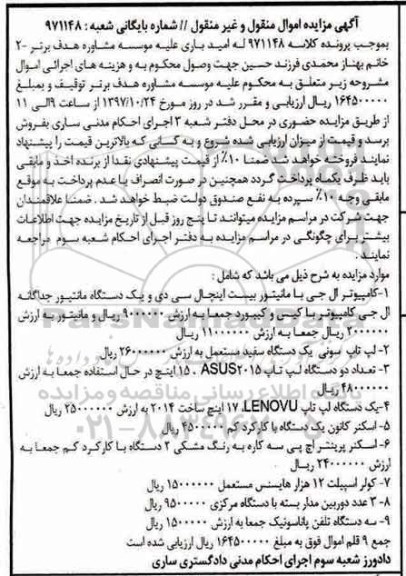 آگهی مزایده اموال منقول و غیر منقول // شماره بایگانی شعبه : ۹۷۱۱۴۸
بموجب پرونده کلاسه ۹۷۱۱۴۸ له امید یاری علیه موسسه مشاوره هدف برتر -۲
خانم بهناز محمدی فرزند حسین جهت وصول محکوم به و هزینه های اجرائی اموال
مشروحه زیر متعلق به محکوم علیه موسسه مشاوره هدف برتر توقیف و بمبلغ
۱۶۴۵۰۰۰۰۰ ریال ارزیابی و مقرر شد در روز مورخ ۱۳۹۷/۱۰/۲۴ از ساعت ۹ الی ۱۱
از طریق مزایده حضوری در محل دفتر شعبه ۳ اجرای احکام مدنی ساری بفروش
برسد و قیمت از میزان ارزیابی شده شروع و به کسانی که بالاترین قیمت را پیشنهاد
نمایند فروخته خواهد شد ضمنا ۱۰٪ از قیمت پیشنهادی نقدا از برنده اخذ و مابقی
باید ظرف یکماه پرداخت گردد همچنین در صورت انصراف یا عدم پرداخت به موقع
مابقی وجه ۱۰٪ سپرده به نفع صندوق دولت ضبط خواهد شد . ضمنا علاقمندان
جهت شرکت در مراسم مزایده میتوانند تا پنج روز قبل از تاریخ مزایده جهت اطلاعات
بیشتر برای چگونگی در مراسم مزایده به دفتر اجرای احکام شعبه سوم مراجعه
نمایند .
موارد مزایده به شرح ذیل می باشد که شامل :
۱-کامپیوتر ال جی با مانیتور بیست اینچال سی دی و یک دستگاه مانتیور جداگانه
ال جی کامپیوتر با کیس و کیبورد جمعا به ارزش ۹۰۰۰۰۰۰ ریال و مانیتور به ارزش
۲۰۰۰۰۰۰ ریال جمعا به ارزش ۱۱۰۰۰۰۰۰ ریال
۲- لپ تاپ سونی یک دستگاه سفید مستعمل به ارزش ۲۶۰۰۰۰۰۰ ریال
۳- تعداد دو دستگاه لپ تاپ ASUS۲۰۱۵ ، ۱۵ اینچ در حال استفاده جمعا به ارزش
۴۸۰۰۰۰۰۰ ریال
۴-یک دستگاه لپ تاپ LENOVU، ۱۷ اینچ ساخت ۲۰۱۴ به ارزش ۲۵۰۰۰۰۰۰ ریال
۵- اسکنر کانون یک دستگاه با کارکرد کم ۴۵۰۰۰۰۰ ریال
۶- اسکنر پرینتر اچ پی سه کاره به رنگ مشکی ۲ دستگاه با کارکرد کم جمعا به
ارزش ۲۴۰۰۰۰۰۰ ریال
۷- کولر اسپیلت ۱۲ هزار هایسنس مستعمل ۱۵۰۰۰۰۰۰ ریال
۸- ۳ عدد دوربین مدار بسته با دستگاه مرکزی ۹۵۰۰۰۰۰ ریال
۹- سه دستگاه تلفن پاناسونیک جمعا به ارزش ۱۵۰۰۰۰۰ ریال
جمع ۹ قلم اموال فوق به مبلغ ۱۶۴۵۰۰۰۰۰ ریال ارزیابی شده است
دادورز شعبه سوم اجرای احکام مدنی دادگستری ساری